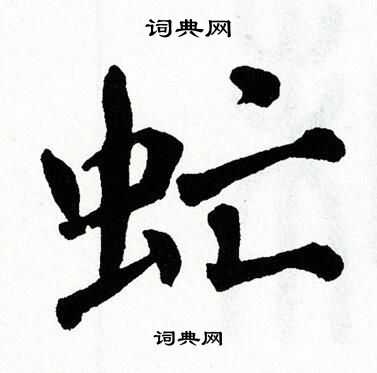 词典网
虻
词典网